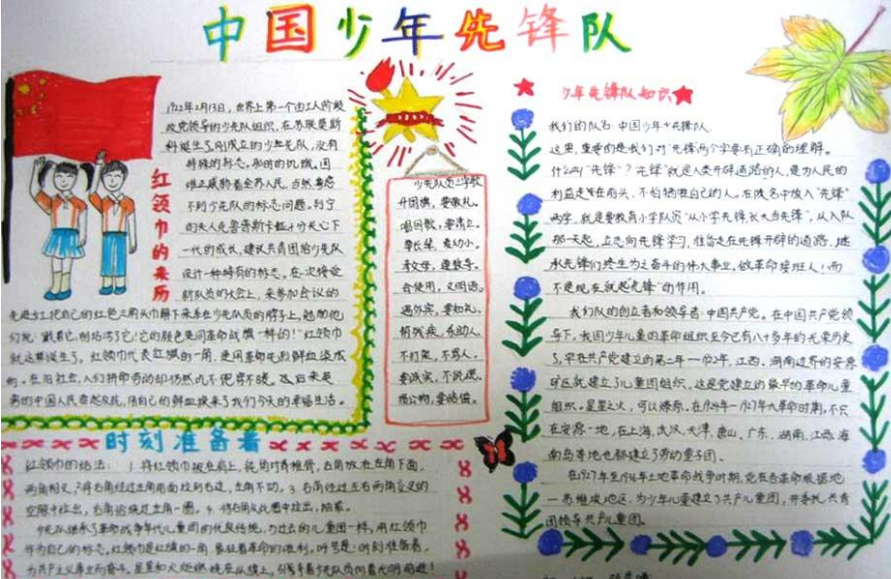 中国少年先锋队
红领巾的来历
1922年2月13日，世界上第一个由工人阶级
政党领导的少先队组织，在苏联莫斯
科诞生了。刚成立的少先队，没有
特殊的标志。那时的饥饿、困
难正威胁着全苏人民，当然考虑
不到少先队的标志问题。列宁
的夫人克鲁普斯卡娅十分关心下
一代的成长，建议共青团给少先队
设计一种特有的标志。在一次接受
新队员的大会上，来参加会议的
先进女工把自己的红色三角头巾解下来系在少先队员的脖子上，勉励他
们说：戴着它，别玷污了它！它的颜色是同革命战旗一样的！"红领巾
就这样诞生了。红领巾代表红旗的一角，是用革命先烈鲜血染成
的。在旧社会，人们拼命劳动却仍然吃不饱穿不暖。
的中国人民奋起反抗，用自己的鲜血换来了我们今天的幸福生活。
少先队员
升国旗，要敬礼。
唱国歌，要肃立。
尊长辈，爱幼小。
孝父母，遵教导。
会使用，文明语。
遇外宾，要知礼。
帮残疾，多助人。
不打架，不骂人。
要诚实，不说谎。
惜公物，要赔偿。
少年先锋队知识
我们的队名：中国少年先锋队
这里，重要的是我们对"先锋"两个字要有正确的理解。
什么叫"先锋"？"先锋"就是人类开辟道路的人，是为人民的
利益走在前头，不怕牺牲自己的人。在队名中放入"先锋"
两字，就是要教育小学队员"从小学先锋长大当先锋"，从入队
那一天起，立志向先锋学习，准备走在先锋开辟的道路，继
承先锋们终生为之奋斗的伟大事业，做革命接班人！而
不是现在就起"先锋"的作用。
我们队的创立者和领导者：中国共产党。在中国共产党领
导下，我国少年儿童的革命组织至今已有八十多年的光荣历史
了。早在共产党建立的第二年—1922年，江西、湖南边界的安源
矿区就建立了儿童团组织。这是党建立的最早的革命儿童
组织。星星之火，可以燎原。在1924年—1927年大革命时期，不只
在安源一地，在上海、武汉、天津、唐山、广东、湖南、江西、海
南岛等地也都建立了劳动童子团。
在1927年至1936年土地革命战争时期，党在各革命根据地
地区，为少年儿童建立了共产儿童团，并委托共青
团领导共产儿童团。
时刻准备着
红领巾的结法：1.将红领巾披在肩上，钝角对脊椎骨，右角放在左角下面，
两角相交。2.将右角经过左角前面拉到右边，左角不动。3.右角经过左右两角交叉的
空隙中拉出，右角恰绕过左角一圈。4.将右角从此圈中拉出，抽紧。
少先队继承了革命战争年代儿童团的优良传统，与过去的儿童团一样，用红领巾
作为自己的标志。红领巾是红旗的一角，象征着革命的胜利。呼号是：时刻准备着，
为共产主义事业而奋斗。星星和火炬在队旗上，引导着少先队员向着光明前进！